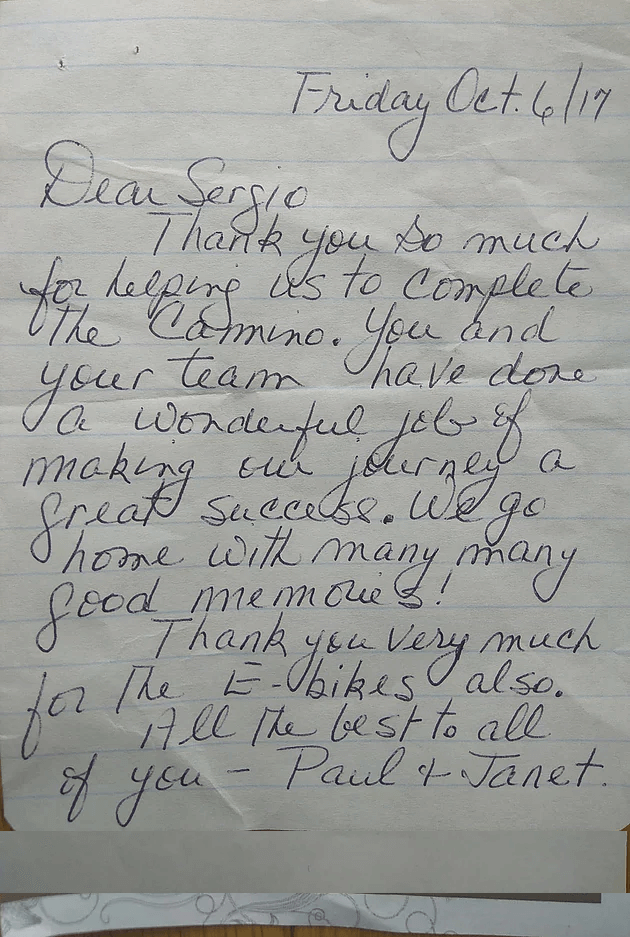 Friday Oct. 6/17
Dear Sergio
Thank you so much
for helping us to complete
the Camino. You and
your team have done
a wonderful job of
making our journey a
great success. We go
home with many many
good memories!
Thank you very much
for the E-bikes also.
All the best to all
of you - Paul + Janet.